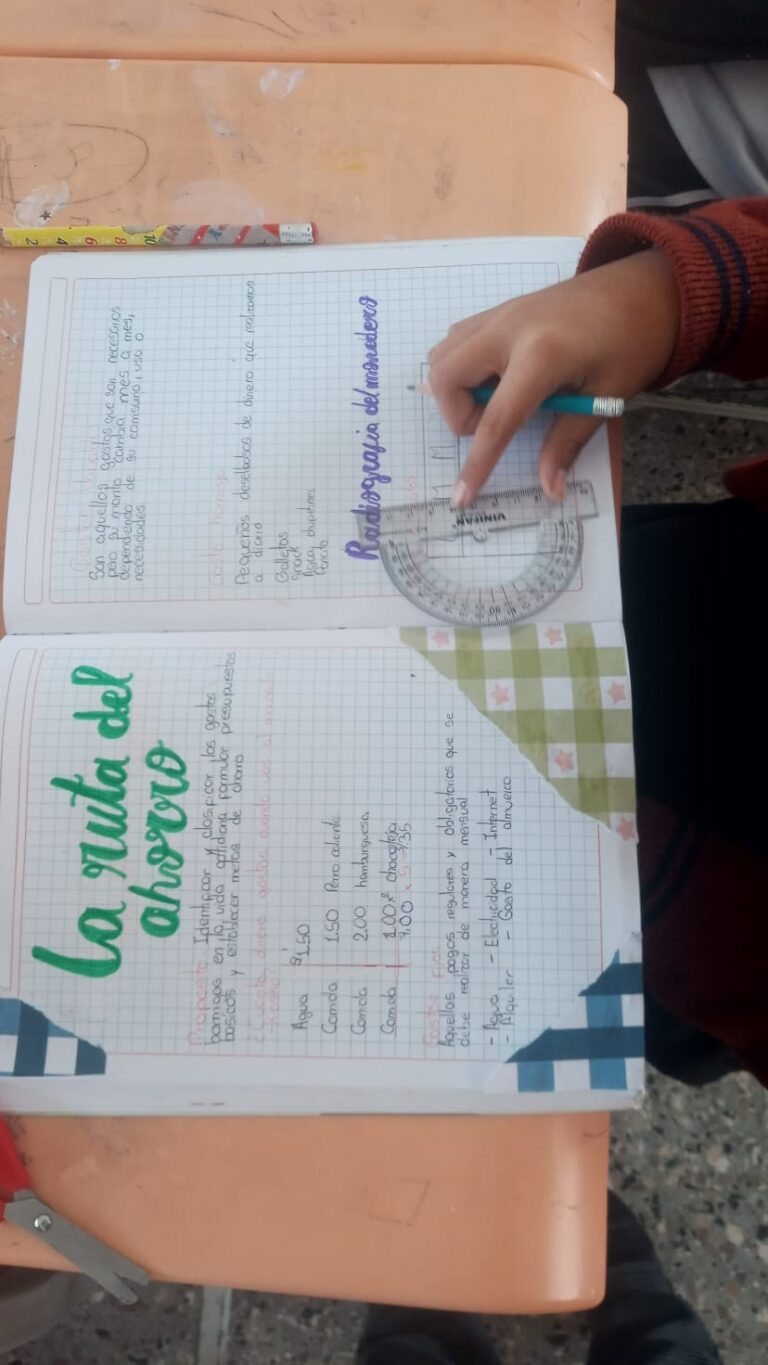 La ruita del
ahorro
Proposito: Identificar y clasificar los gastos
hormigas en la vida cotidiana formular presupuestos
basicos y establecer metas de ahorro
¿Cuanto dinero gastas cuando vas al
Agua $1.50
Comida 1.50 Perro caliente
Comida 2.00 hamburguesa
Comida 1.00 chocoteja
7.00
Gastos Fijos
Aquellos pagos regulares y obligatorios que se
debe realizar de manera mensual
- Agua - Electricidad - Internet
- Alquiler - Gasto del almuerzo
Son aquellos gastos que son necesarios
pero su monto cambia mes a mes,
dependiendo de su consumo, uso o
necesidades
Gasto hormiga
Pequeños desembolsos de dinero que realizamos
a diario
Galletas
snack
Radiografia del monedero
UNIFAN
2 4 6 8 10